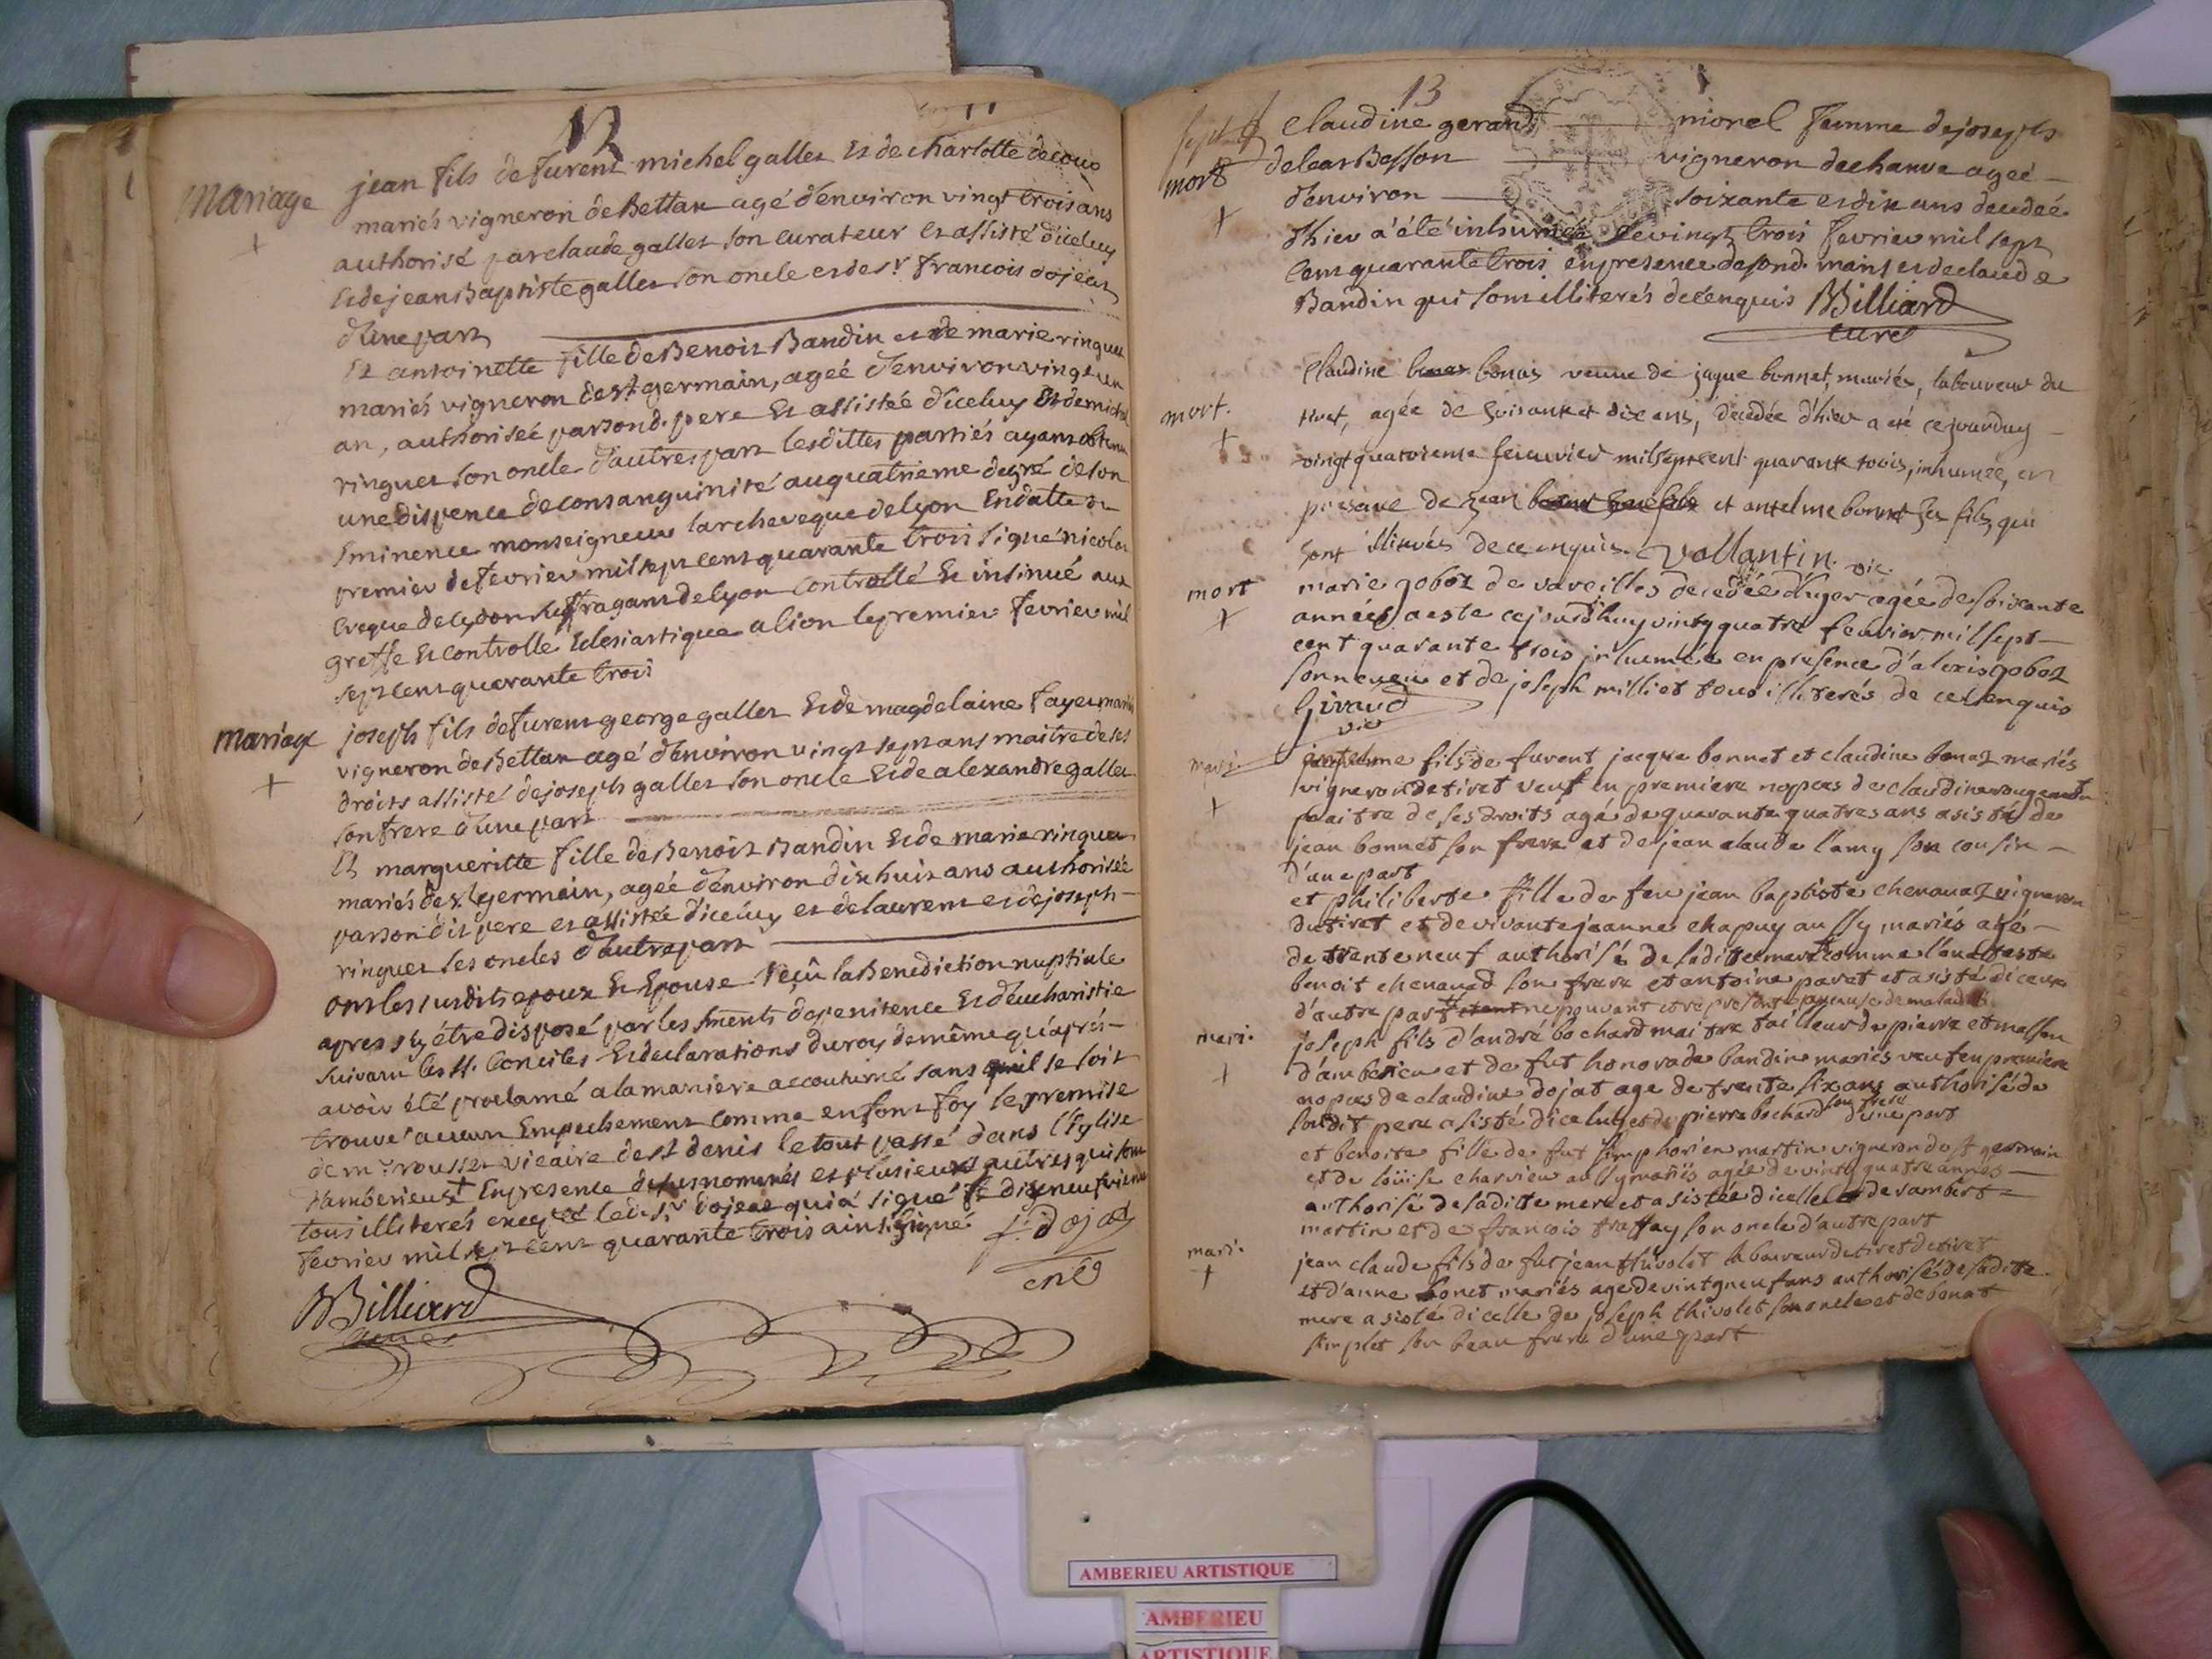 12
11
mariage
jean fils de furent michel gallet Et de charlotte decouz
mariés vigneron de Bettan agé d'environ vingt trois ans
authorisé par claude gallet son curateur et assisté d'iceluy
Et de jean Baptiste gallet son oncle et de sr francois dojeat
d'une part
Et antoinette fille de Benoit Bandin et de marie ringuet
mariés vigneron de st germain, ageé d'environ vingt un
an, authoriseé par son d. pere Et assisteé d'iceluy Et de michel
ringuet son oncle d'autre part lesdittes partiés ayant obtenu
une dispence de consanguinité au quatrieme degré de son
Eminence monseigneur l'archeveque de lyon En datte du
premier de fevrier mil sept cent quarante trois signé nicolas
Eveque de sydon suffragant de lyon controllé Et insinué aux
greffe Et controlle Eclesiastique a lion le premier fevrier mil
sept cent quarante trois
mariage
joseph fils de furent george gallet Et de magdelaine fayet mariés
vigneron de Bettan agé d'environ vingt sept ans maitre de ses
droits assisté de joseph gallet son oncle Et de alexandre gallet
son frere d'une part
Et margueritte fille de Benoit Bandin Et de marie ringuet
mariés de st germain, ageé d'environ dix huit ans authoriseé
par son dit pere et assisteé d'iceluy et de laurent et de joseph
ringuet ses oncles d'autre part
ont les susdits epoux Et Epouse reçû la Benediction nuptiale
apres s'y être disposé par les sments de penitence Et d'eucharistie
suivant les st. Conciles Et declarations du roy de même qu'aprés
avoir été proclamé a la maniere accoutumé sans qu'il se soit
trouvé aucun Empechement comme en font foy le premise
de mr. rousset vicaire de st denis le tout passé dans l'Eglise
d'amberieux En presence des susnommés et plusieurs autres qui sont
tous illiterés excepté ledit sr dojeat qui a signé le dix neufvieme
fevrier mil sept cent quarante trois ainsi signé f: dojat
Billiard
curé
13
mort
claudine gerand morel femme de joseph
vigneron de chauve ageé
d'environ soixante et dix ans decedeé
d'hier a été inhumeé le vingt trois fevrier mil sept
cent quarante trois en presence de son d. mary et de claude
Bandin qui sont illiterés de ce enquis Billiard
curé
mort.
claudine bonas veuve de jaque bonnet, mariés, laboureur du
tiret, agée de soixante et dix ans, decedée d'hier a eté cejourduy
vingt quatrieme feuvrier mil sept cent quarante trois, inhumée, en
presence de jean et antelme bonnet ses fils, qui
sont illiterés de ce enquis. Vallantin. vic.
mort
marie goboz de vareilles decedée d'hyer agée de soixante
années a este cejourdhuy vintg quatre feuvrier mil sept
cent quarante trois inhumée en presence d'alexis goboz
son neveu et de joseph milliet tous illiterés de ce enquis
Giraud
vic
mari.
antelme fils de furent jacque bonnet et claudine bonaz mariés
vigneron de tiret veuf en premiere nopces de claudine
maitre de ses droits agé de quarante quatres ans asisté de
jean bonnet son frere et de jean claude lamy son cousin
d'une part
et philiberte fille de feu jean baptiste chenavaz vigneron
du tiret et de vivante jeanne chapuy aussy mariés agé
de trente neuf authorisé de sa ditte mere comme l'
benoit chenavad son frere et antoine pavet et asisté diceux
d'autre part ne pouvant etre presente a cause de maladie
mari.
joseph fils d'andré bochard maitre tailleur de pierre et masson
d'amberieu et de fut honorade bandin mariés veuf en premiere
nopces de claudine dojat age de trente six ans authorisé de
son dit pere asisté dicelui et de pierre bochard son frere d'une part
et benoite fille de fut simphorien martin vigneron de st germain
et de loüise charvieu aussy mariés agée de vintg quatre années
authorisé de sa dicte mere et asistée dicelle et de lambert
martin et de francois traffay son oncle d'autre part
mari.
jean claude fils de fut jean thivolet laboureur de tiret de tiret
et d'anne bonet mariés age de vintg neuf ans authorisé de sa dite
mere asisté dicelle de joseph thivolet son oncle et de bonat
simplet son beau frere d'une part
AMBERIEU ARTISTIQUE
AMBERIEU
ARTISTIQUE